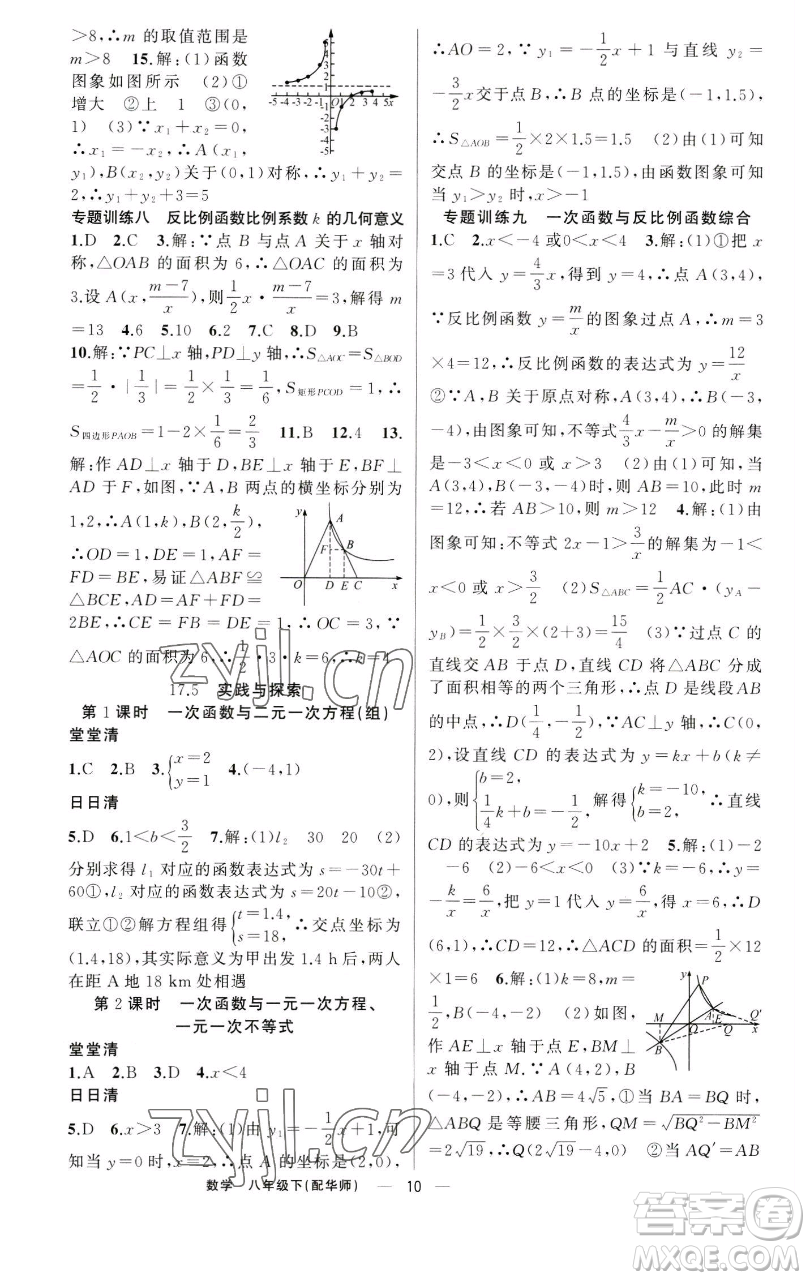 >8,∴m 的取值范围是
m>8 15.解:(1)函数
图象如图所示 (2)①
增大 ②上 1 ③(0,
1) (3)∵x₁+x₂=0,
∴x₁=-x₂,∴A(x₁,
y₁),B(x₂,y₂)关于(0,1)对称,∴y₁+y₂=
2,∴y₁+y₂+3=5
专题训练八 反比例函数比例系数 k 的几何意义
1.D 2.C 3.解:∵点 B 与点 A 关于 x 轴对
称,△OAB 的面积为 6,∴△OAC 的面积为
3.设 A(x,(m-7)/x),则 1/2 x·(m-7)/x=3,解得 m
=13 4.6 5.10 6.2 7.C 8.D 9.B
10.解:∵PC⊥x 轴,PD⊥y 轴,∴S△AOC=S△BOD
=1/2·|1/3|=1/2×1/3=1/6,S矩形PCOD=1,∴
S四边形PAOB=1-2×1/6=2/3 11.B 12.4 13.
解:作 AD⊥x 轴于 D,BE⊥x 轴于 E,BF⊥
AD 于 F,如图,∵A,B 两点的横坐标分别为
1,2,∴A(1,k),B(2,k/2),
∴OD=1,DE=1,AF=
FD=BE,易证△ABF≌
△BCE,AD=AF+FD=
2BE,∴CE=FB=DE=1,∴OC=3,∵
△AOC 的面积为 6,∴1/2·3·k=6,∴k=4
17.5 实践与探索
第 1 课时 一次函数与二元一次方程(组)
堂堂清
1.C 2.B 3.{x=2 y=1 4.(-4,1)
日日清
5.D 6.1<b<3/2 7.解:(1)l₂ 30 20 (2)
分别求得 l₁ 对应的函数表达式为 s=-30t+
60①,l₂ 对应的函数表达式为 s=20t-10②,
联立①②解方程组得{t=1.4, s=18,∴交点坐标为
(1.4,18),其实际意义为甲出发 1.4 h后,两人
在距 A 地 18 km 处相遇
第 2 课时 一次函数与一元一次方程、
一元一次不等式
堂堂清
1.A 2.B 3.D 4.x<4
日日清
5.D 6.x>3 7.解:(1)由 y₁=-1/2 x+1,可
知当 y=0时,x=2,∴点 A 的坐标是(2,0),
∴AO=2,∵y₁=-1/2 x+1 与直线 y₂=
-3/2 x交于点 B,∴B 点的坐标是(-1,1.5),
∴S△AOB=1/2×2×1.5=1.5 (2)由(1)可知
交点 B 的坐标是(-1,1.5),由函数图象可知
当 y₁>y₂ 时,x>-1
专题训练九 一次函数与反比例函数综合
1.C 2.x<-4 或0<x<4 3.解:(1)①把 x
=3代入 y=4/3 x,得到 y=4,∴点 A(3,4),
∵反比例函数 y=m/x 的图象过点 A,∴m=3
×4=12,∴反比例函数的表达式为 y=12/x
②∵A,B 关于原点对称,A(3,4),∴B(-3,
-4),由图象可知,不等式4/3 x-m/x>0 的解集
是-3<x<0 或 x>3 (2)由图象可知,当
A(3,4),B(-3,-4)时,则 AB=10,此时 m
=12,∴若 AB>10,则 m>12 4.解:(1)由
图象可知:不等式 2x-1>3/x 的解集为-1<
x<0 或 x>3/2 (2)S△ABC=1/2 AC·(yA-
yB)=1/2×3/2×(2+3)=15/4 (3)∵过点 C 的
直线交 AB 于点 D,直线将△ABC 分成
了面积相等的两个三角形,∴点 D 是线段 AB
的中点,∴D(1/4,-1/2),∵AC⊥y 轴,∴C(0,
2),设直线 CD 的表达式为 y=kx+b(k≠
0),则{b=2, 1/4 k+b=-1/2, 解得{k=-10, b=2, ∴直线
CD 的表达式为 y=-10x+2 5.解:(1)-2
-6 (2)-6<x<0 (3)∵k=-6,∴y=
-k/x=6/x,把 y=1 代入 y=6/x,得 x=6,∴D
(6,1),∴CD=12,∴△ACD 的面积=1/2×12
×1=6 6.解:(1)k=8,m=
1/2,B(-4,-2) (2)如图,
作 AE⊥x 轴于点 E,BM⊥x
轴于点 M.∵A(4,2),B
(-4,-2),∴AB=4√5,①当 BA=BQ 时,
△ABQ 是等腰三角形,QM=√(BQ²-BM²)
=2√19,∴Q(2√19-4,0) ②当 AQ′=AB
数学 八年级下(配华师) — 10 —
zyjl.cn
zyjl.cn
答案圈
MXQE.COM